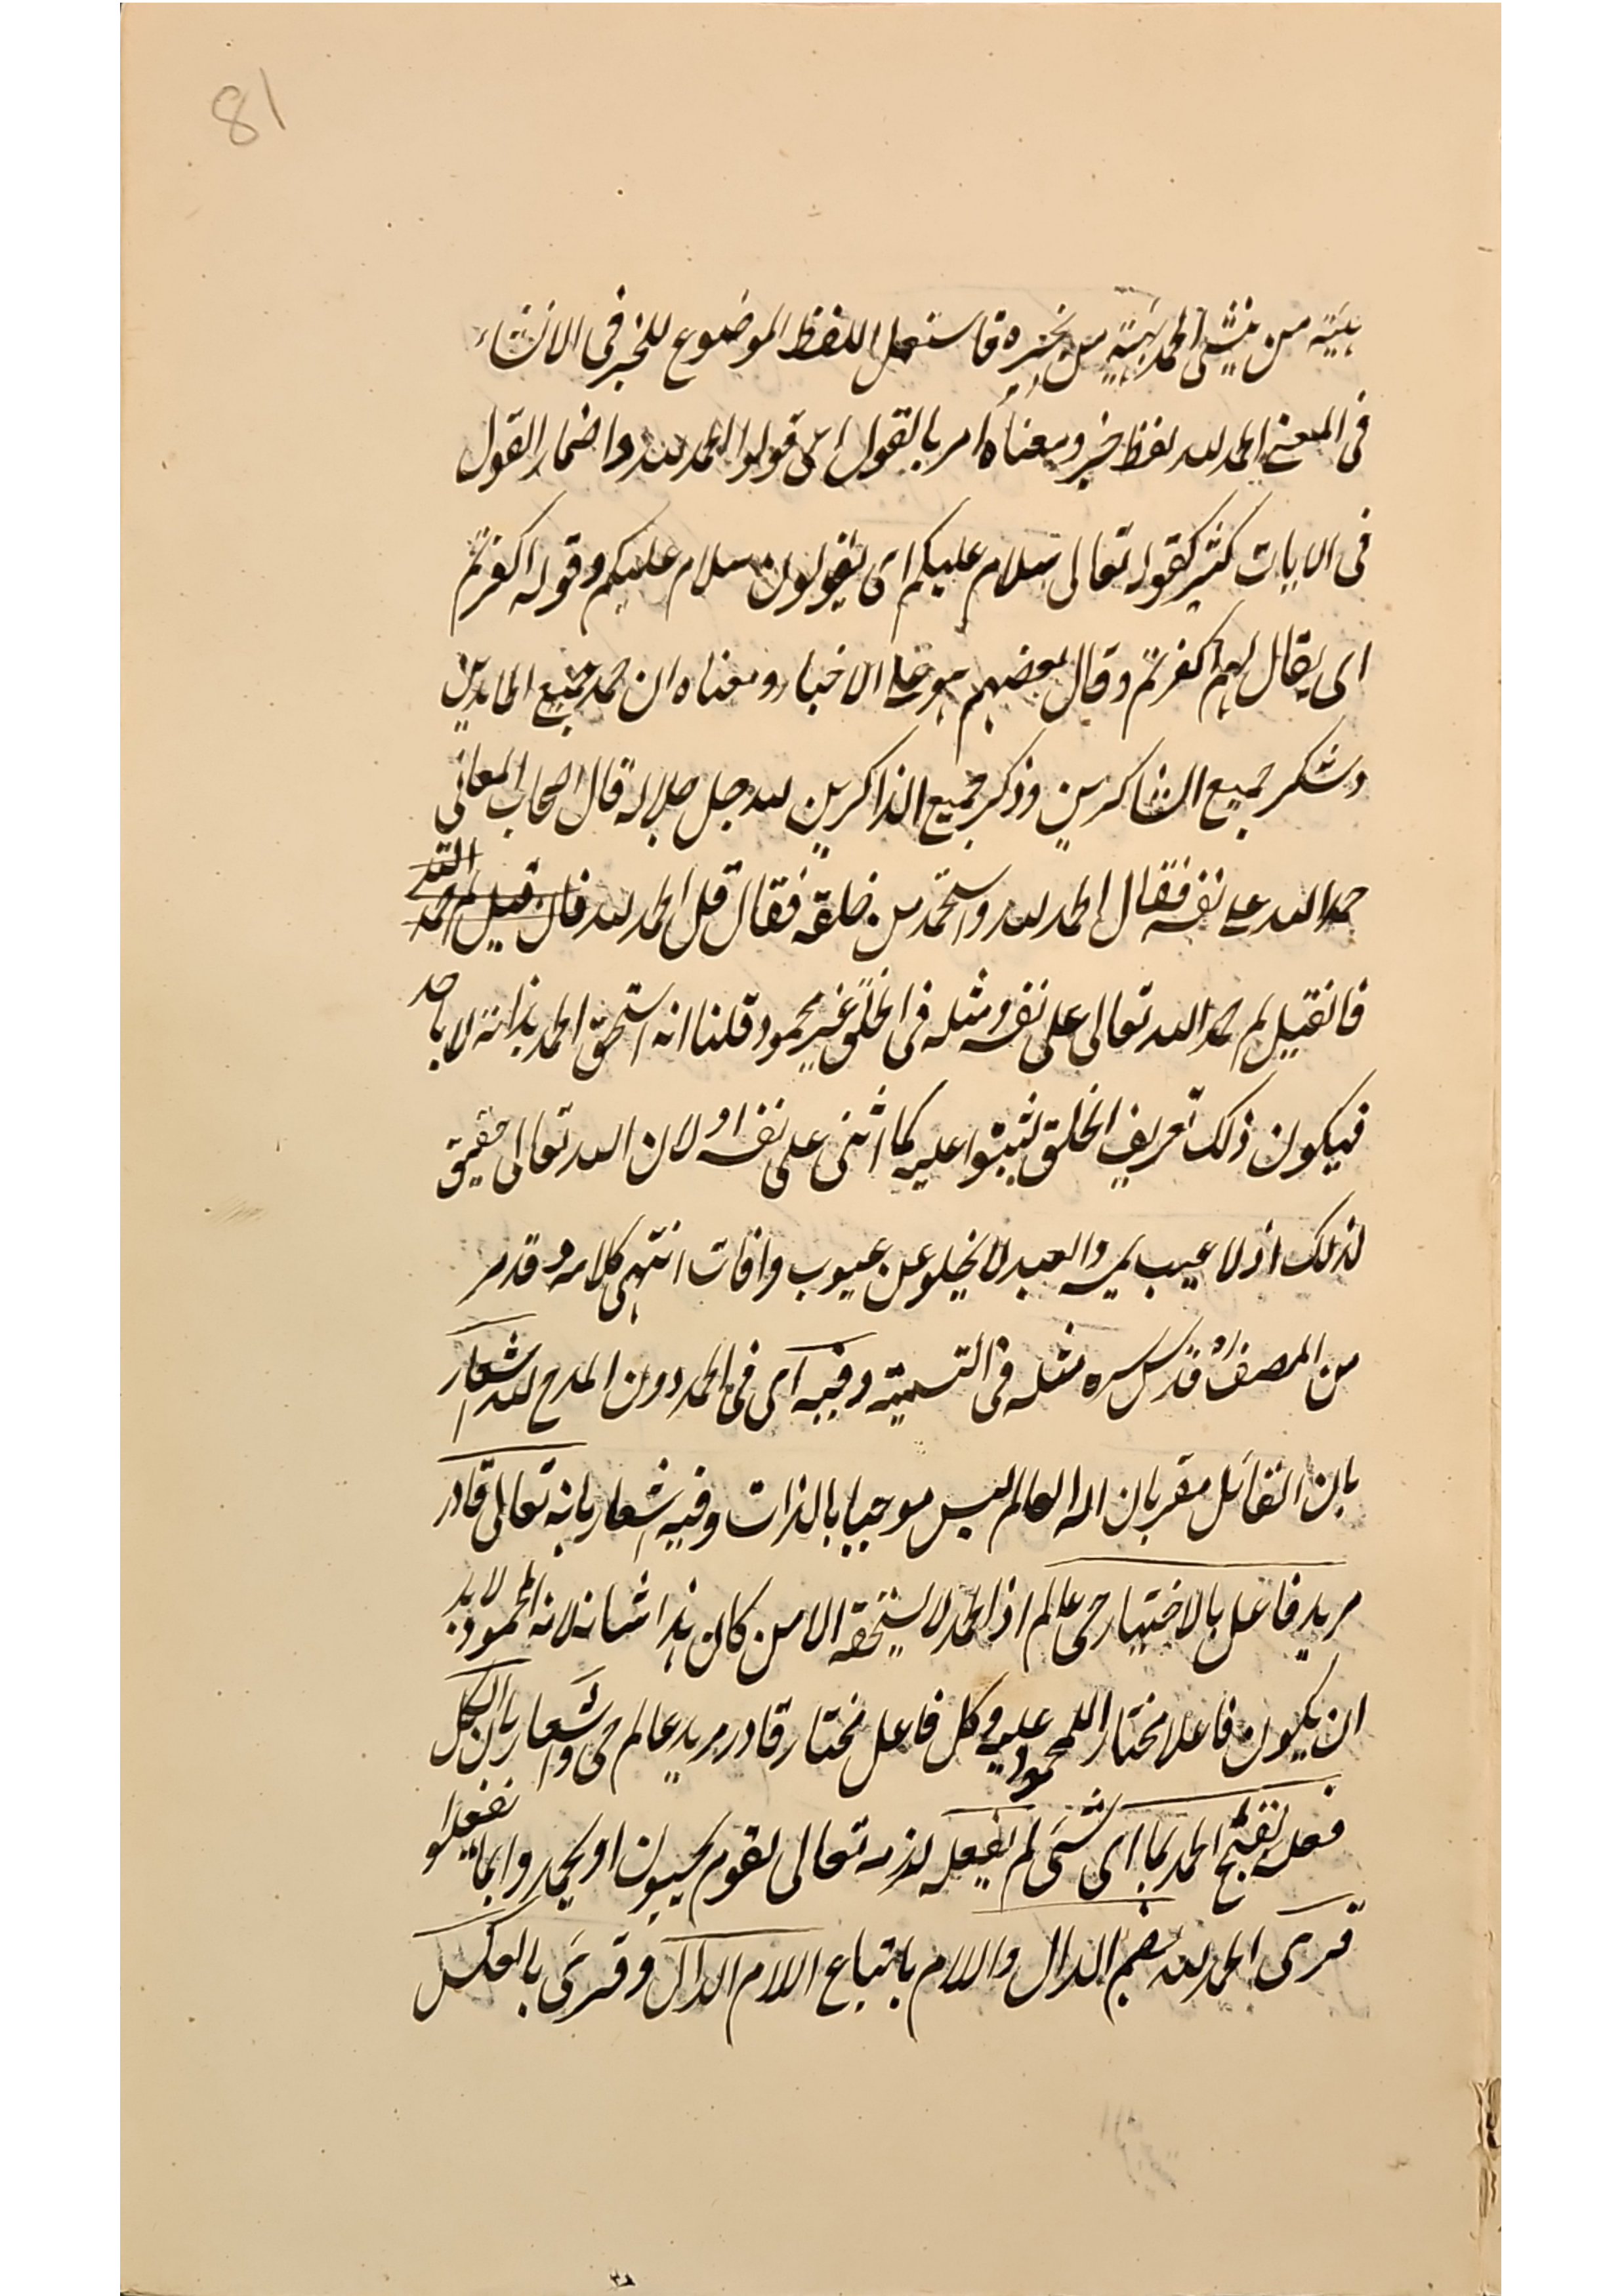 81
هيئة من ينشئ الحمد بهيئة من يخبره فاستعمل اللفظ الموضوع للخبر فى الانشاء
فى المعنى الحمد لله لفظ خبر ومعناه امر بالقول اى قولوا الحمد لله واضمار القول
فى الايات كثير كقوله تعالى سلام عليكم اى يقولون سلام عليكم وقوله اكفرتم
اى يقال لهم اكفرتم وقال بعضهم هو على الاخبار ومعناه ان حمد جميع الحامدين
وشكر جميع الشاكرين وذكر جميع الذاكرين لله جل جلاله قال اصحاب المعانى
حمد الله على نفسه فقال الحمد لله واستحمد من خلقه فقال قل الحمد لله فان قيل لم حمد الله
فانقيل لم حمد الله تعالى على نفسه ومثله فى الخلق غير محمود قلنا انه استحق الحمد بذاته لا باحد
فيكون ذلك تعريف الخلق ليثنوا عليه كما اثنى على نفسه او لان الله تعالى حقيق
لذلك اذ لا عيب يمسه والعبد لا يخلو عن عيوب وافات انتهى كلامه وقد مر
من المصنف قدس سره مثله فى التسمية وفيه اى فى الحمد دون المدح لله اشعار
بان القائل مقر بان اله العالم ليس موجبا بالذات وفيه اشعار بانه تعالى قادر
مريد فاعل بالاختيار حى عالم اذ الحمد لا يستحقه الا من كان هذا شانه لانه المحمود لا بد
ان يكون فاعلا مختارا للمحمود عليه وكل فاعل مختار قادر مريد عالم حى واشعار بان الكل
فعله يقبح الحمد بما اى شئ لم يفعله لذمه تعالى لقوم يحبون ان يحمدوا بما لم يفعلوا
قرئ الحمد لله بضم الدال واللام باتباع اللام الدال وقرئ بالعكس